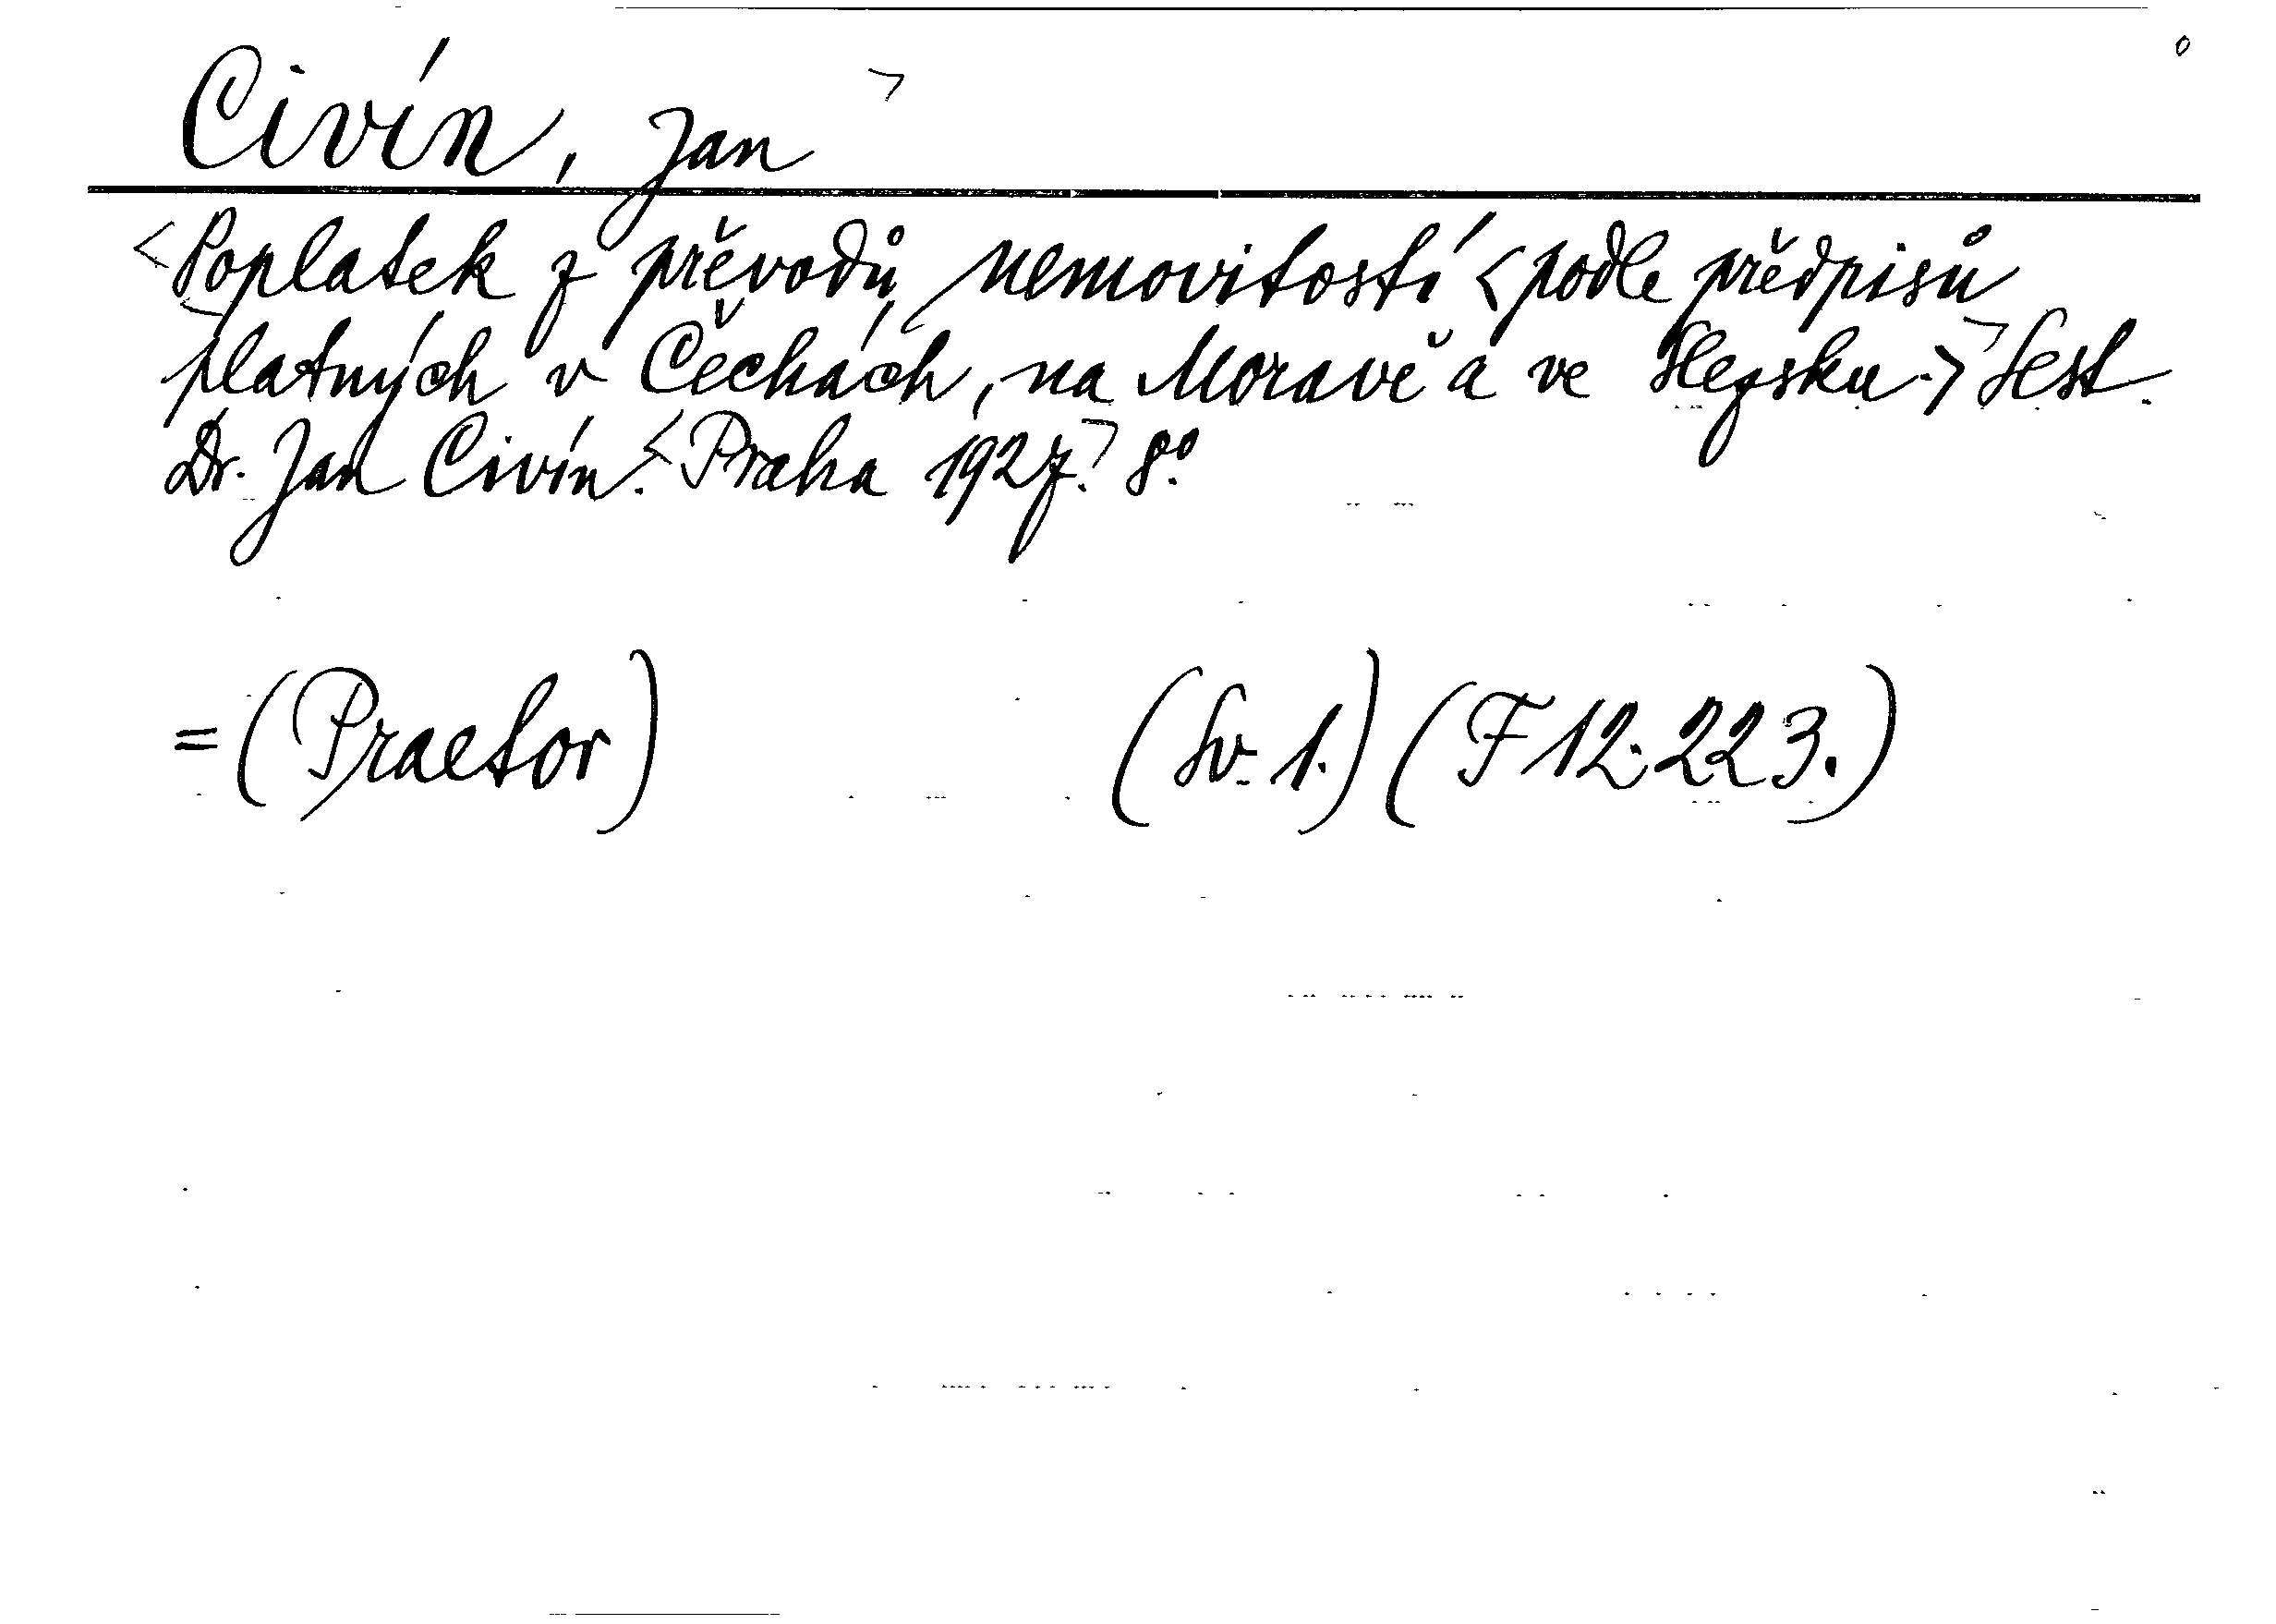 Civín, Jan
Poplatek z převodů nemovitostí <podle předpisů
platných v Čechách, na Moravě a ve Slezsku.> Sest.
Dr. Jan Civín. Praha 1927. 8°.
= (Praetor) (Sv. 1.) (F 12.223.)